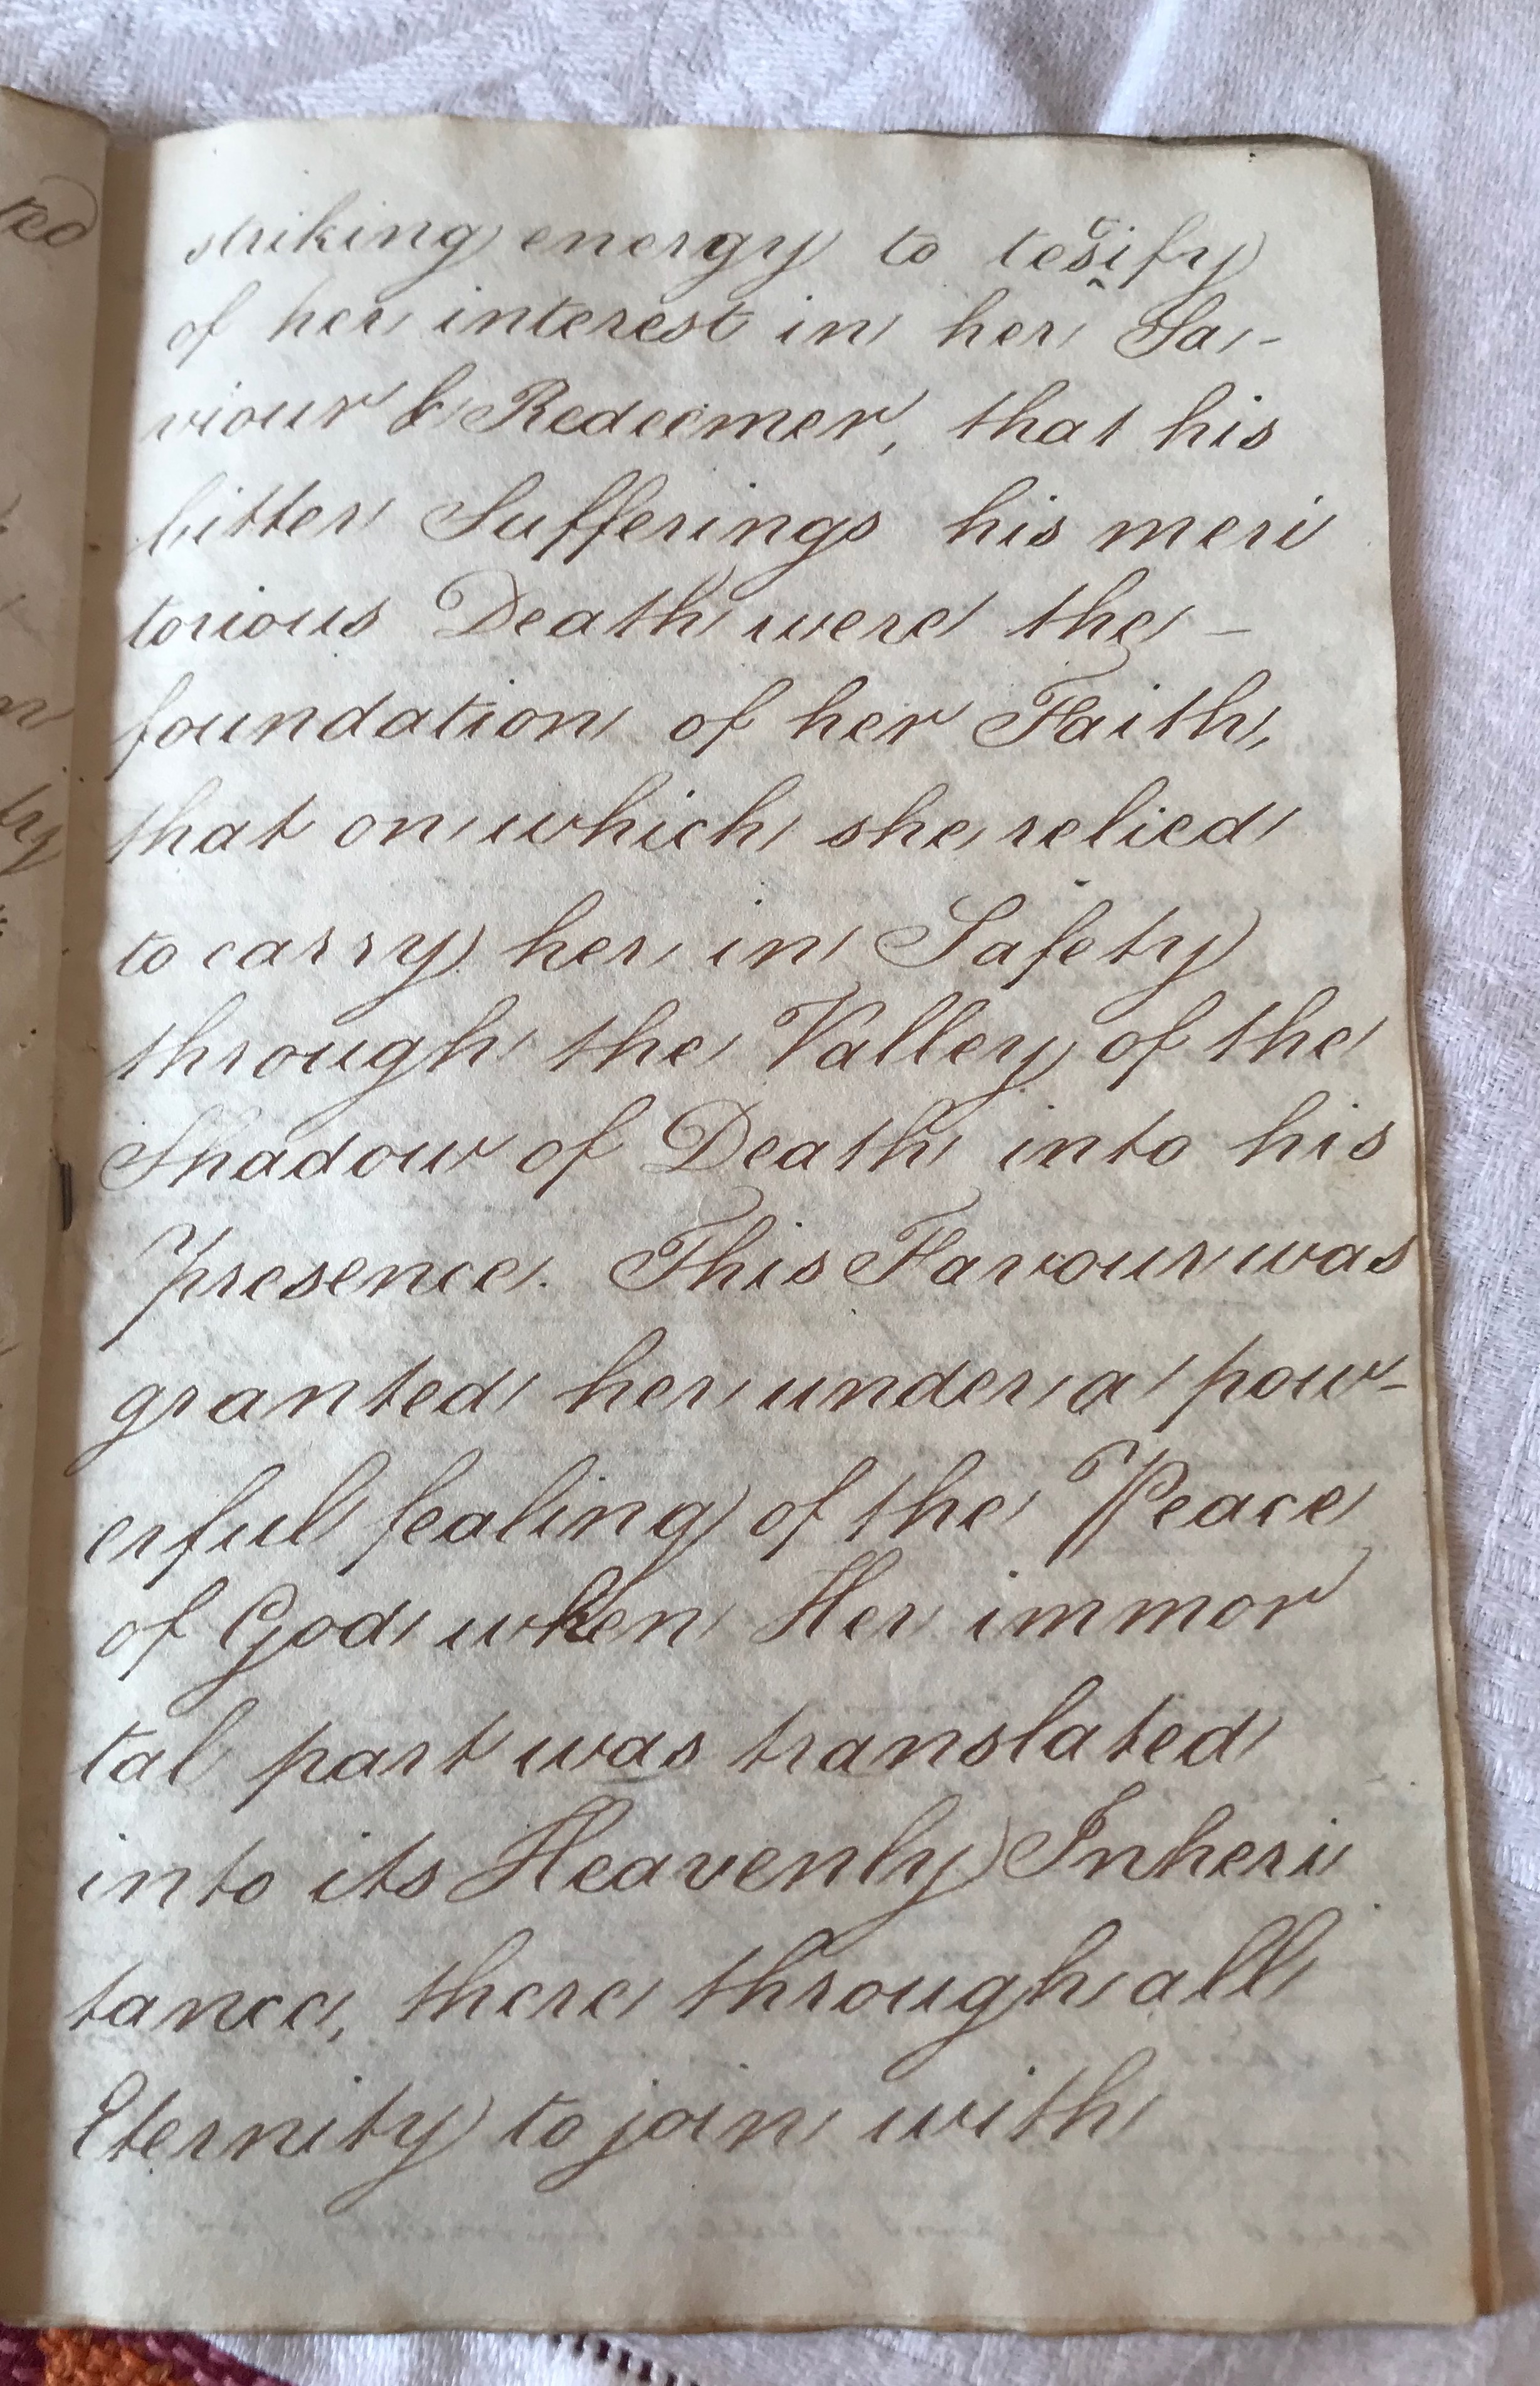 striking energy to tesify
of her interest in her Sa-
viour & Redeemer, that his
bitter Sufferings his meri
torious Death were the -
foundation of her Faith,
that on which she relied
to carry her in Safety
through the Valley of the
Shadow of Death into his
Presence. This Favour was
granted her under a pow-
erful fealing of the Peace
of God when Her immor
tal part was translated
into its Heavenly Inheri
tance, there through all
Eternity to join with